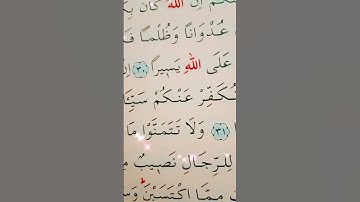 اِنَّ اللّٰهَ كَانَ
عُدْوَانًا وَظُلْمًا
عَلَى اللّٰهِ يَسٖيرًا ﴿٣٠﴾
نُكَفِّرْ عَنْكُمْ
﴿٣١﴾ وَلَا تَتَمَنَّوْا مَا
لِلرِّجَالِ نَصٖيبٌ
مِمَّا اكْتَسَبْنَ